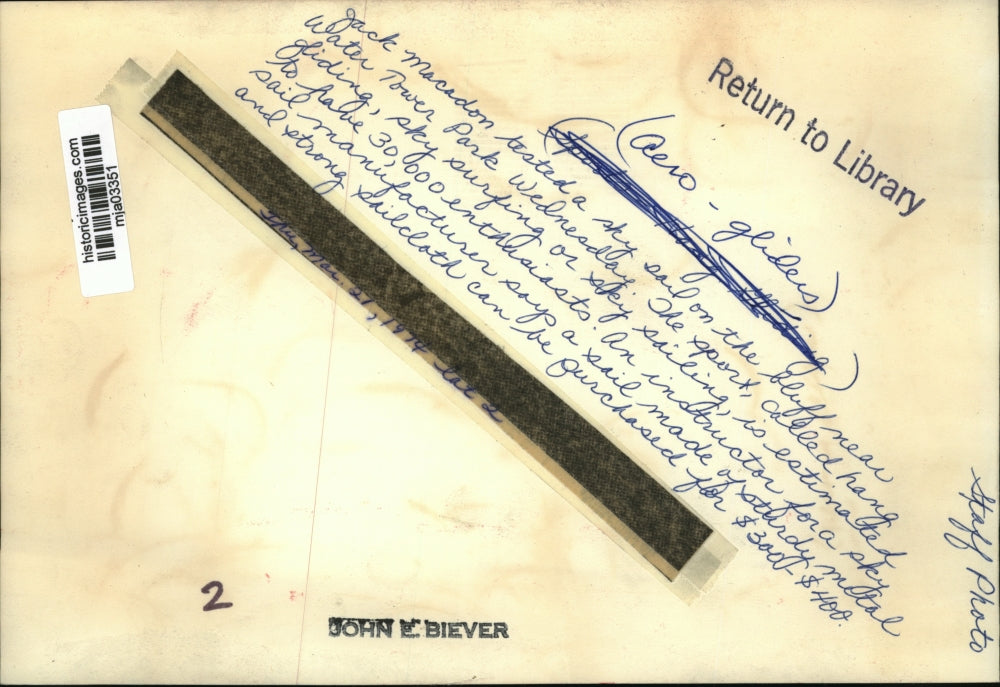 Return to Library
(aero - gliders)
Jack Macadon tested a sky sail on the bluff near
Water Tower Park Wednesday. The sport, called hang
gliding, sky surfing or sky sailing, is estimated
to have 30,000 enthusiasts. An instructor for a sky
sail manufacturer says a sail made of sturdy metal
and strong sailcloth can be purchased for $300-$400.
Thu, Mar. 21, 1974
historicimages.com
mja03351
Staff Photo
2
JOHN E. BIEVER